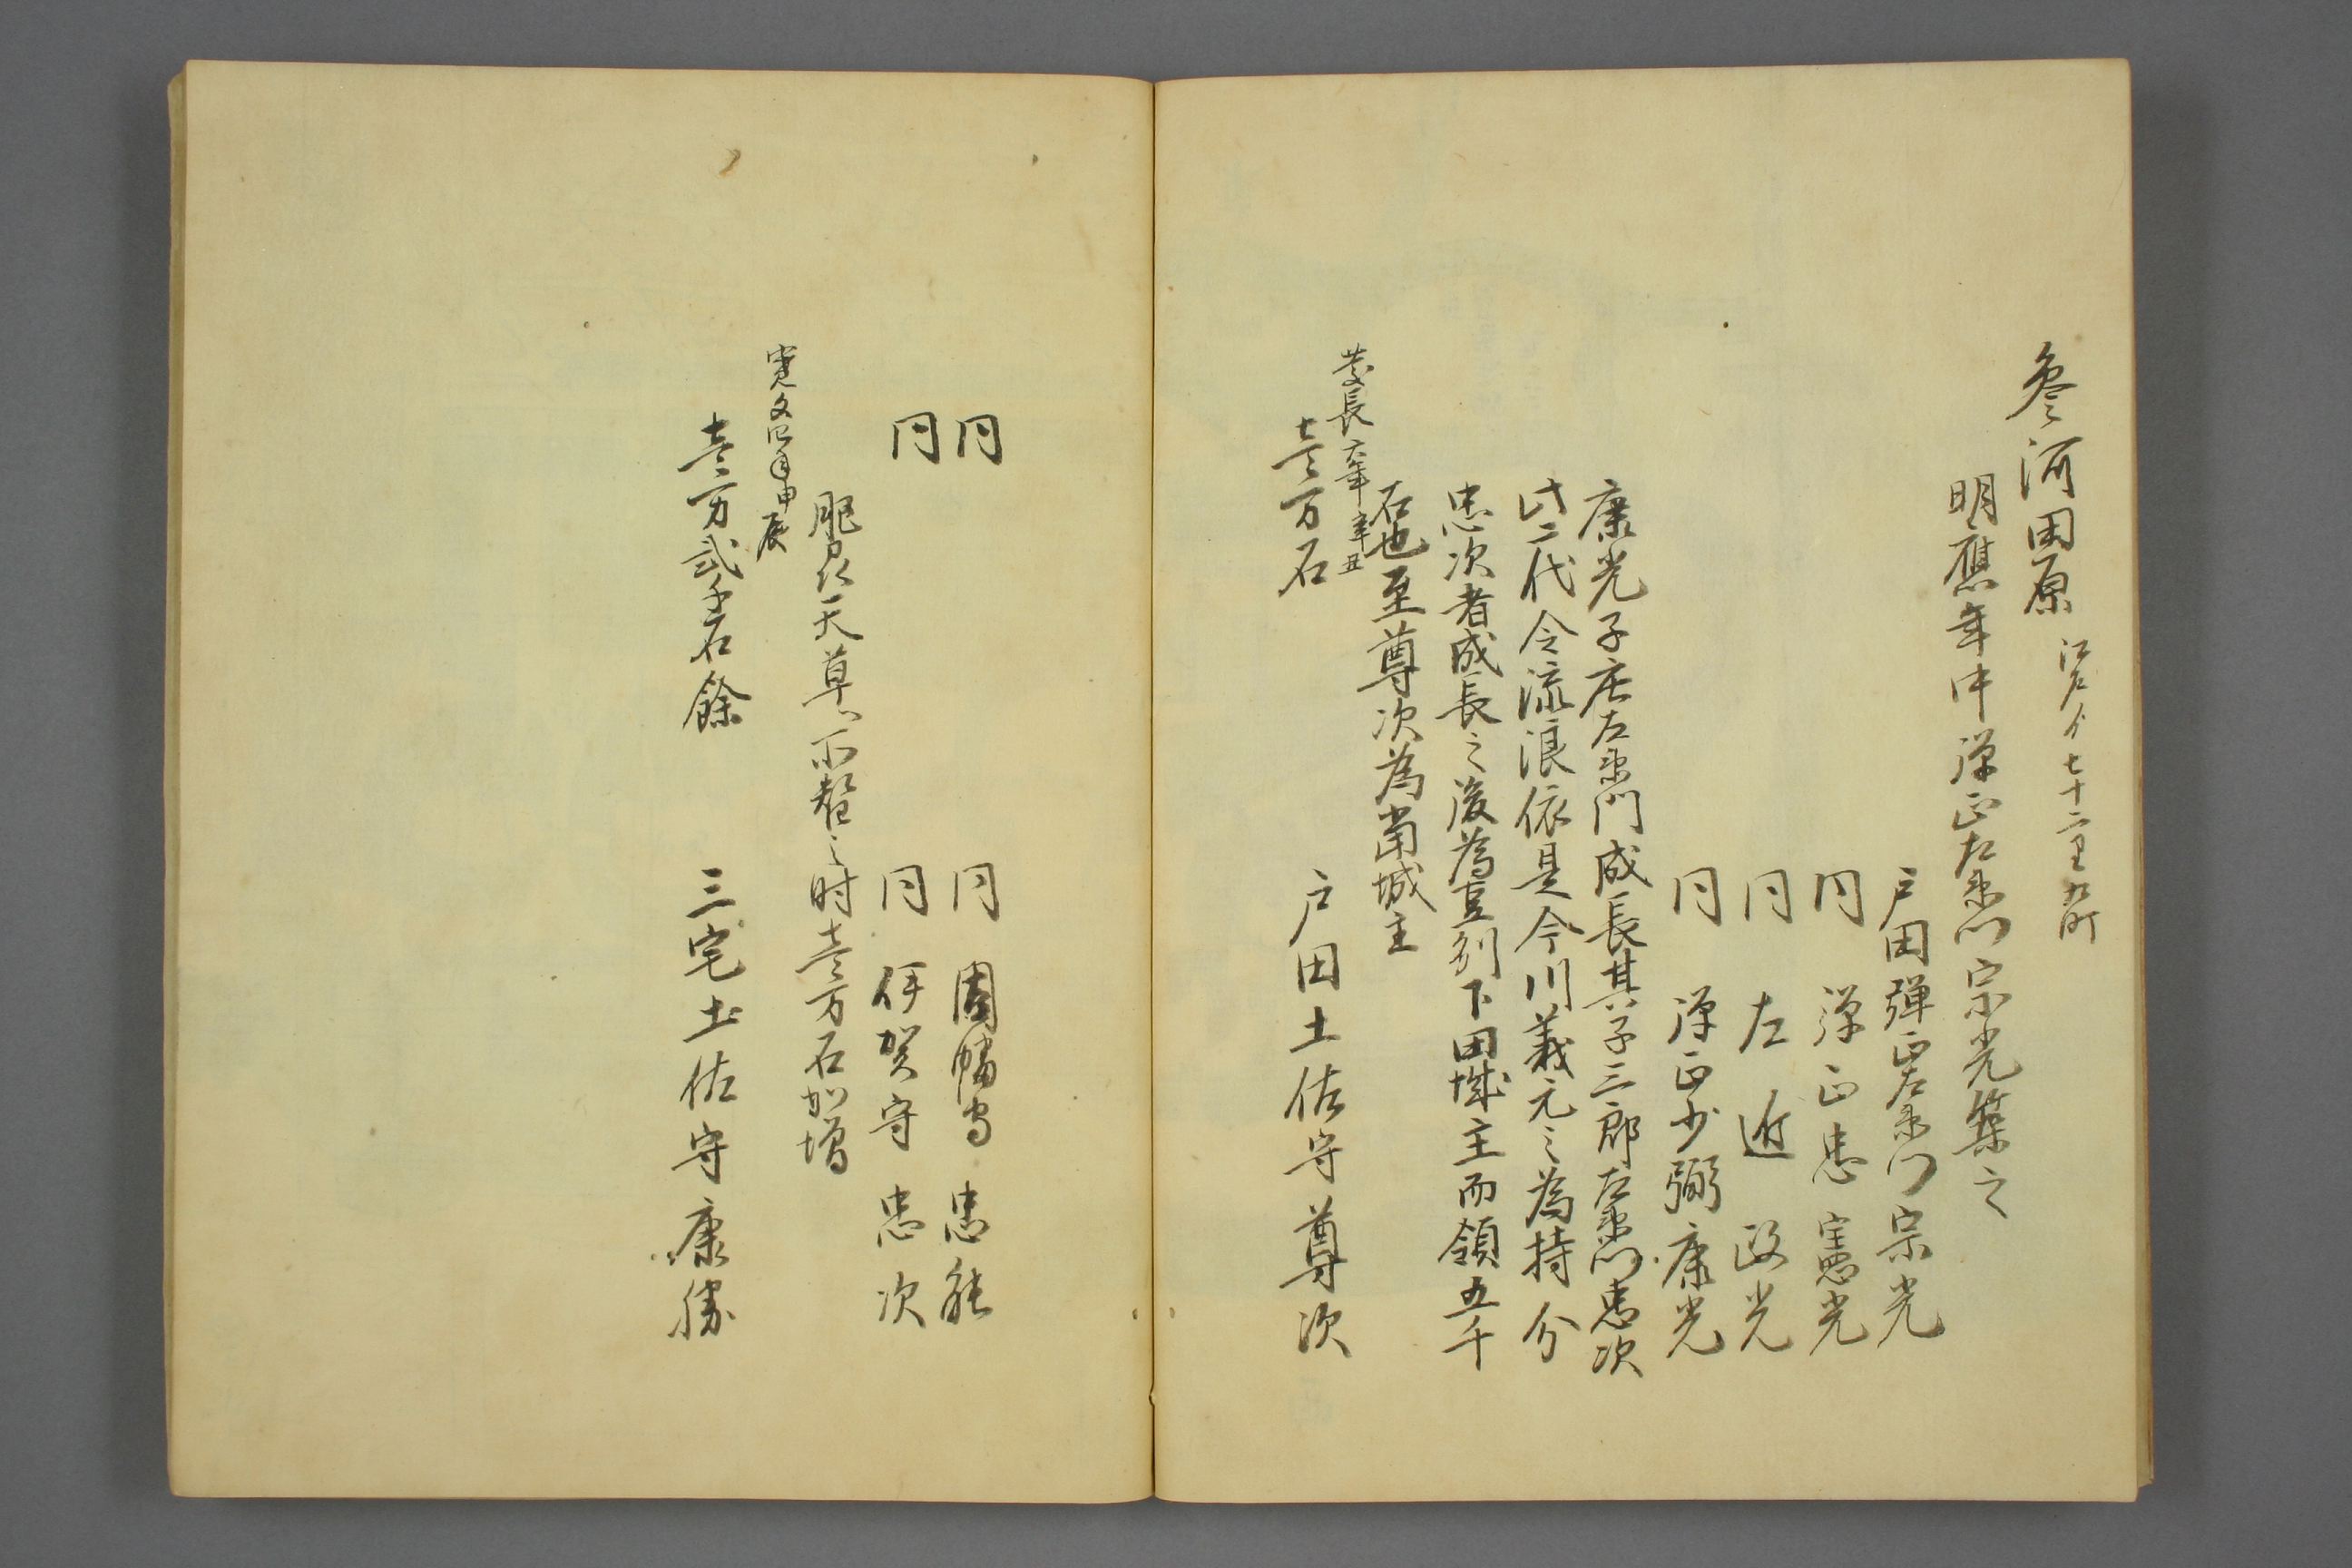 参河田原 江戸ゟ七十二里九町
明應年中弾正左衛門宗光築之
戸田弾正左衛門宗光
同 弾正忠憲光
同 左近政光
同 弾正少弼康光
康光子庄左衛門成長其子三郎左衛門忠次
此二代令流浪依是今川義元之為持分
忠次者成長之後為豆刕下田城主而領五千
石也至尊次為當城主
慶長六年辛丑
壹万石 戸田土佐守尊次
同 同 因幡守忠能
同 同 伊賀守忠次
肥刕天草江所替之时壹万石加増
寛文四年甲辰
壹万貳千石餘 三宅土佐守康勝